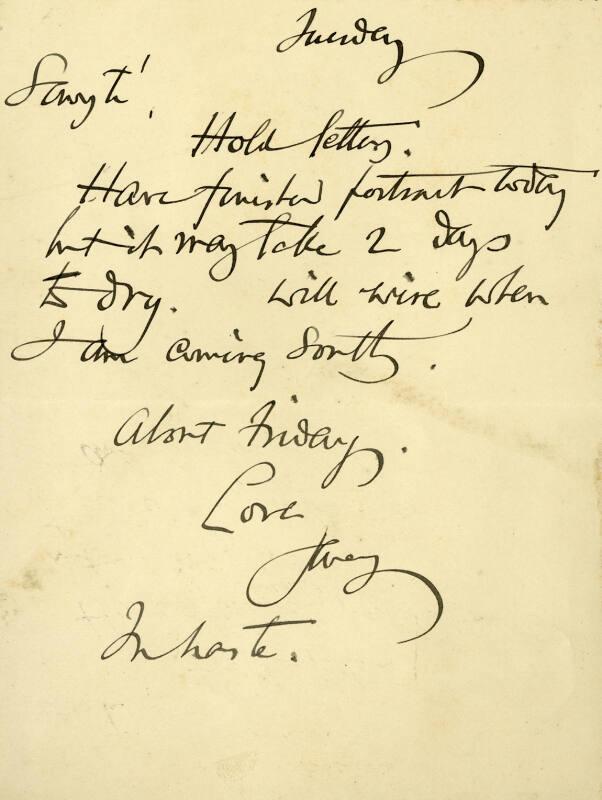 Tuesday
Hold letters.
Have finished portrait today
but it may take 2 days
to dry. Will wire when
I am coming South.
About Friday.
Love
In haste.